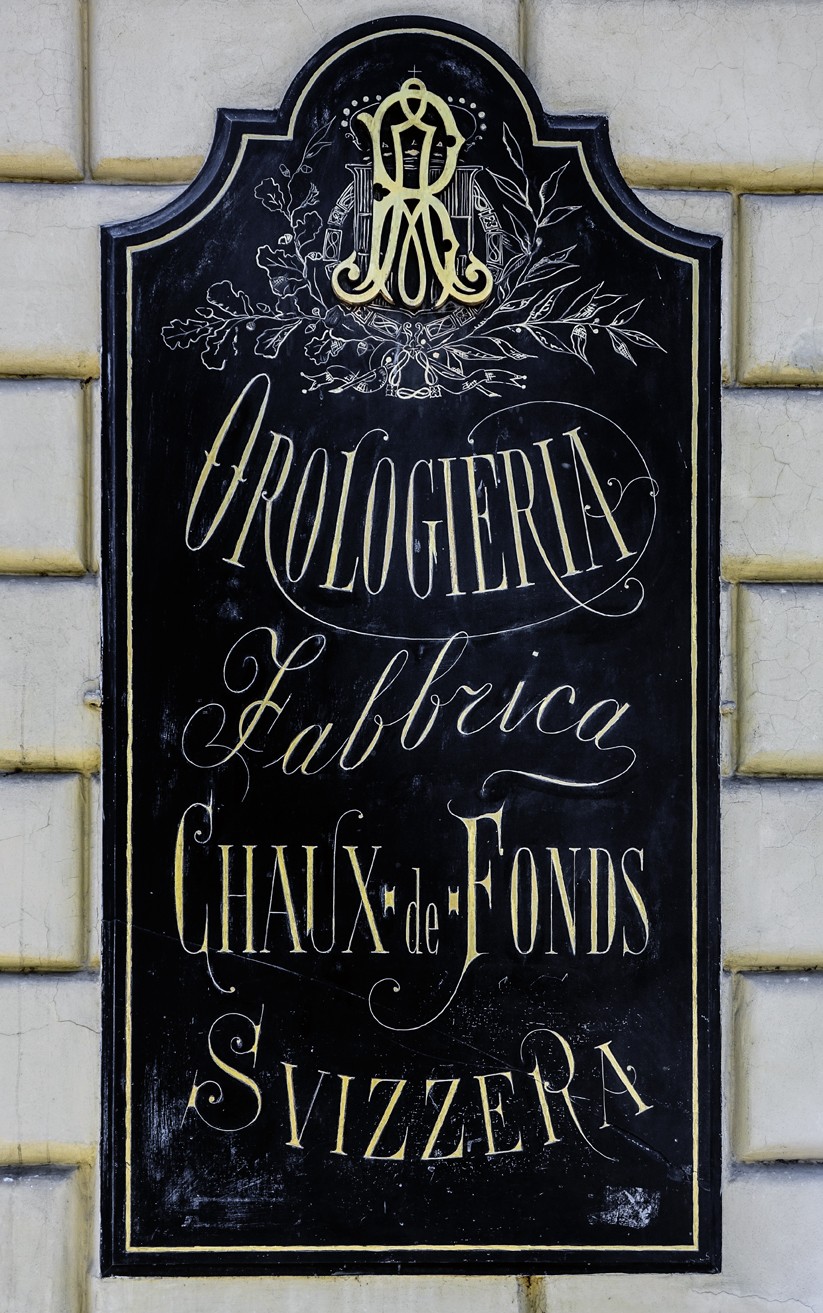 OROLOGIERIA
Fabbrica
CHAUX·de·FONDS
SVIZZERA